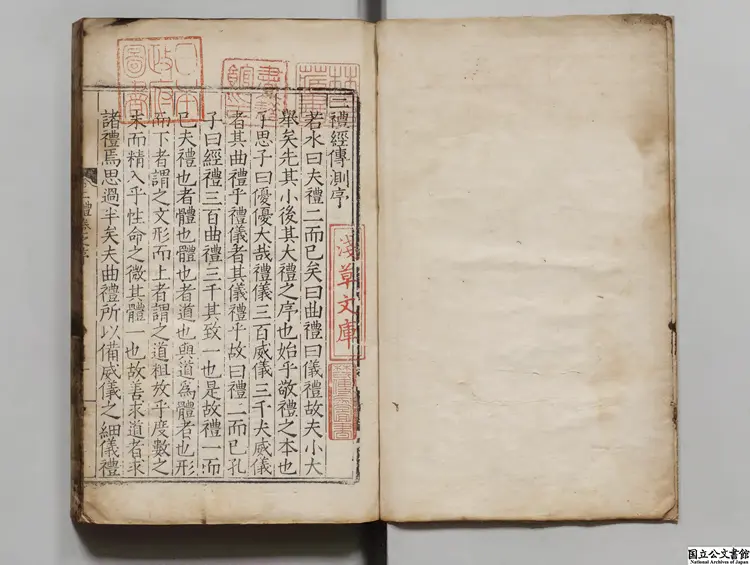 二禮經傳測序
若水曰夫禮二而已矣曰曲禮曰儀禮故夫小大
舉矣先其小後其大禮之序也始乎敬禮之本也
子思子曰優優大哉禮儀三百威儀三千夫威儀
者其曲禮乎禮儀者其儀禮乎故曰禮二而已孔
子曰經禮三百曲禮三千其致一也是故禮一而
已夫禮也者體也體也者道也與道為體者也形
而下者謂之文形而上者謂之道粗放乎度數之
末而精入乎性命之微其體一也故善求道者求
諸禮焉思過半矣夫曲禮所以備威儀之細儀禮
林氏藏書
書籍館印
日本政府圖書
淺草文庫
国立公文書館
National Archives of Japan